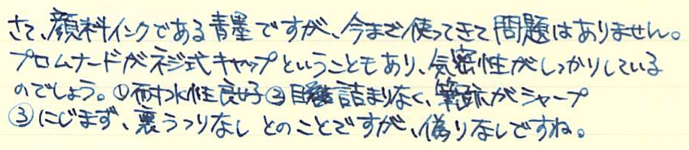 さて、顔料インクである青墨ですが、今まで使ってきて問題はありません。
プロムナードがネジ式キャップということもあり、気密性がしっかりしている
のでしょう。①耐水性良好②目詰まりなく、筆跡がシャープ
③にじまず、裏うつりなし とのことですが、偽りなしですね。